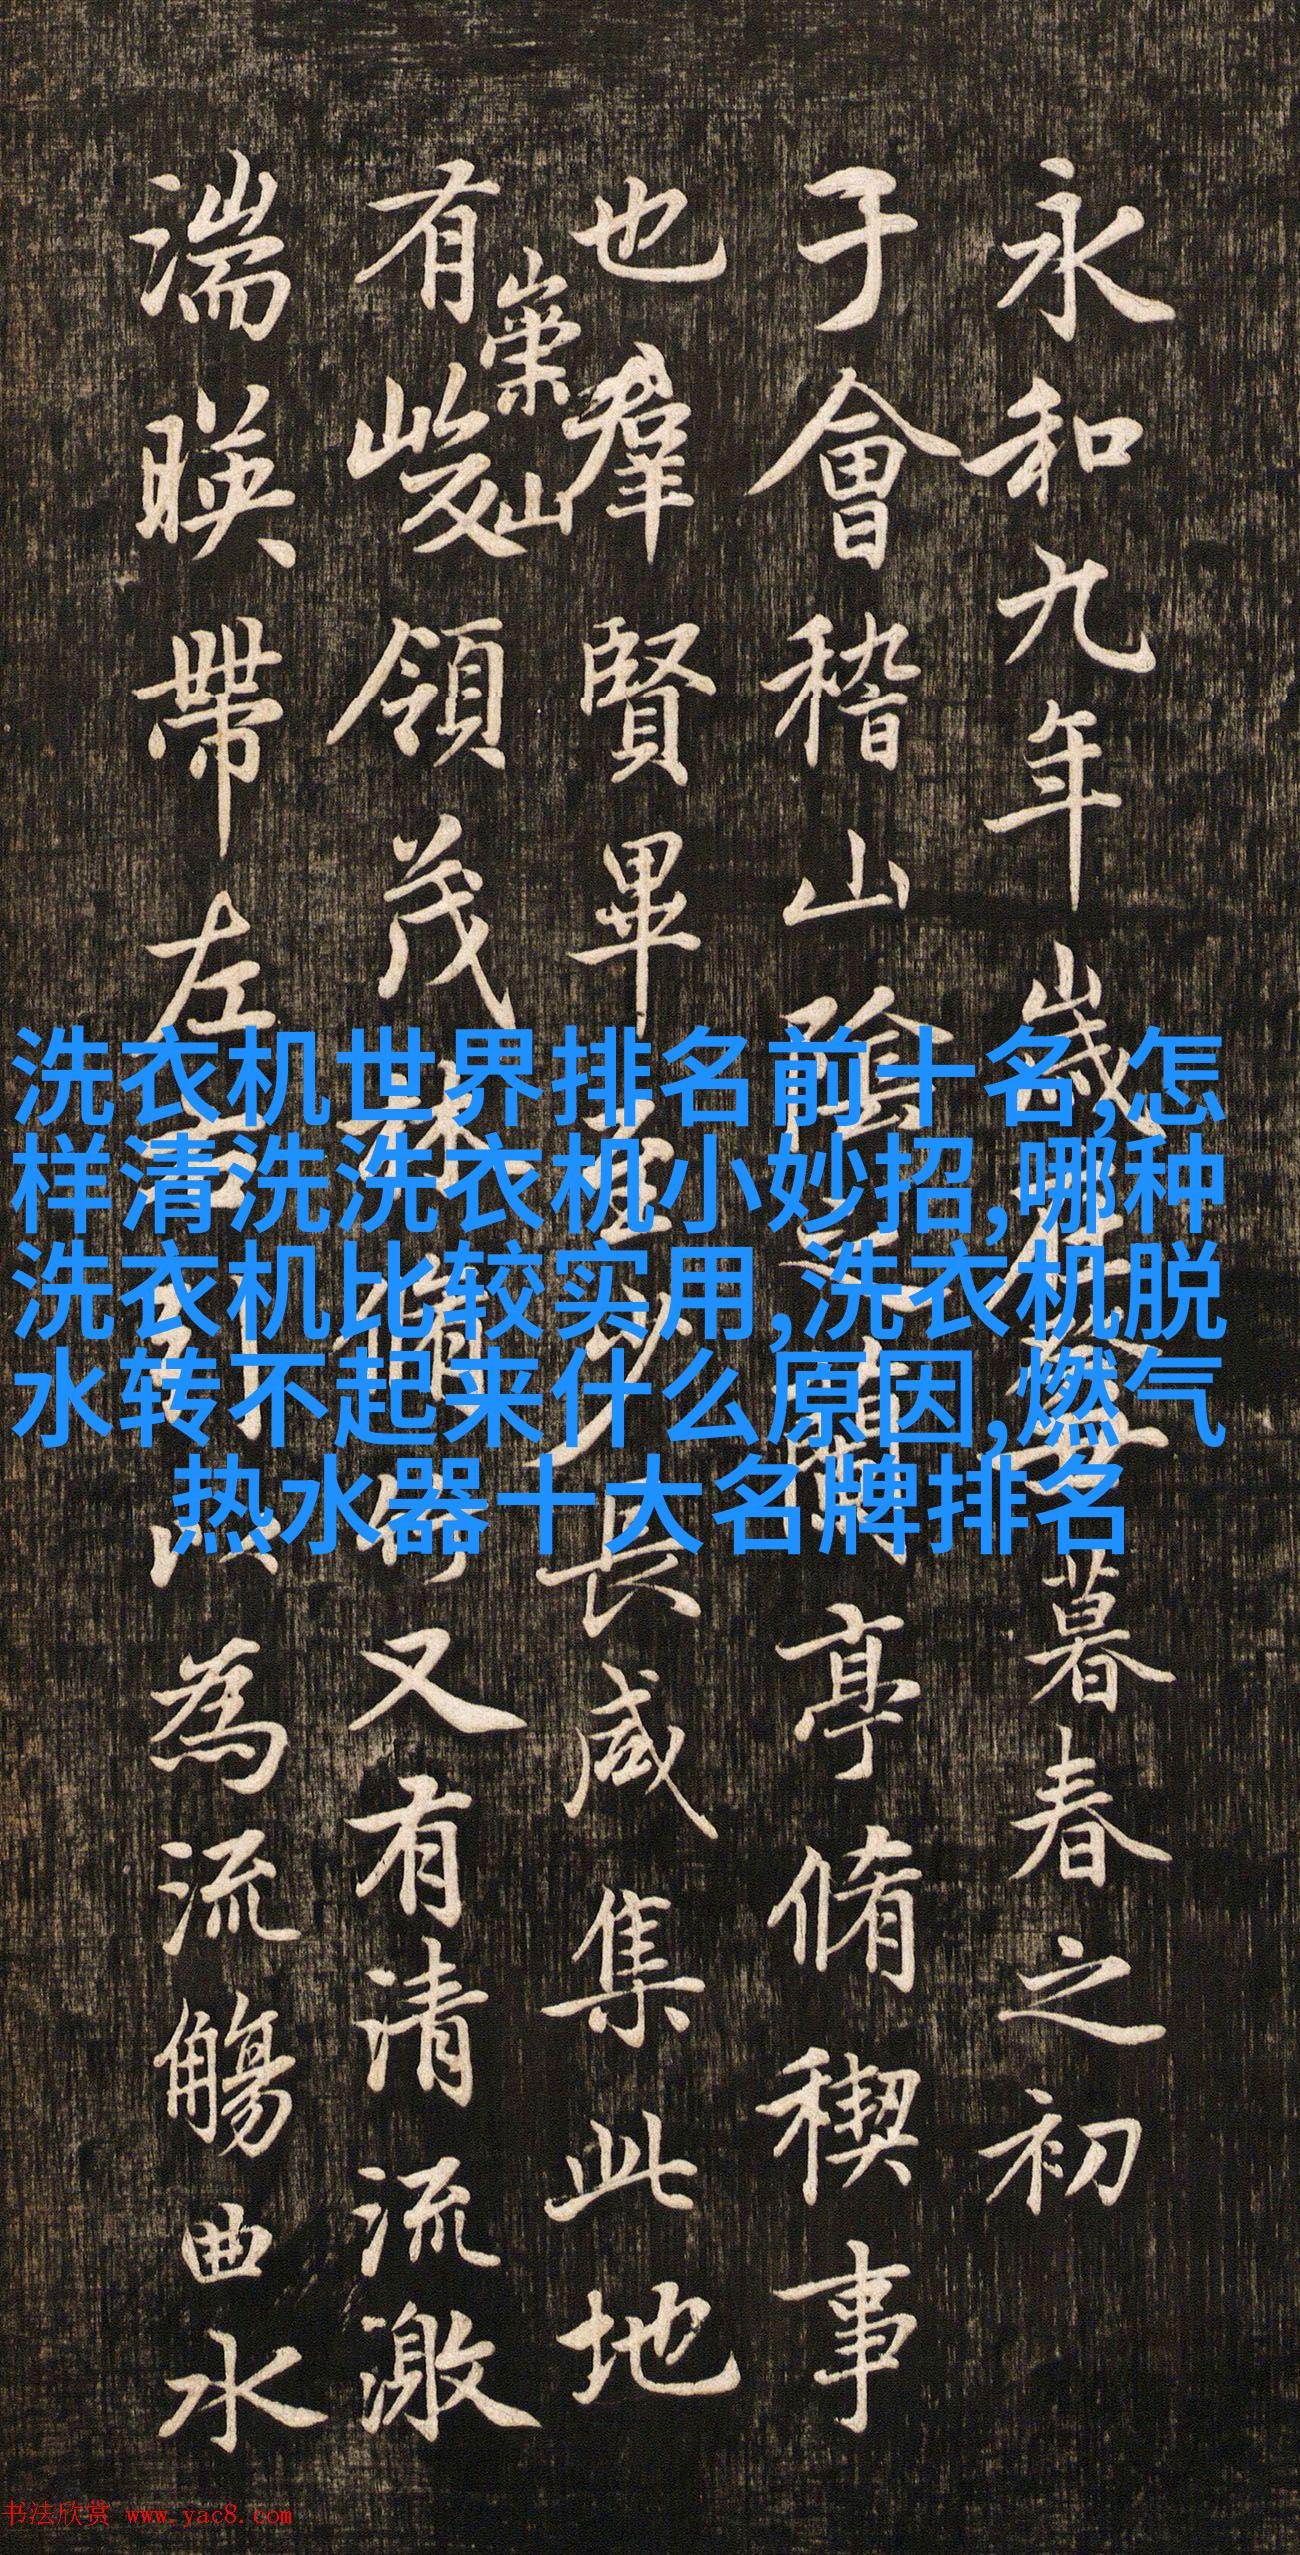 永和九年歲在癸丑暮春之初
于會稽山陰之蘭亭脩稧事
也羣賢畢至少長咸集此地
有崇山峻領茂林脩竹又有清流激
湍暎帶左右引以為流觴曲水
洗衣机世界排名前十名,怎
样清洗洗衣机小妙招,哪种
洗衣机比较实用,洗衣机脱
水转不起来什么原因,燃气
热水器十大名牌排名
书法欣赏 www.yac8.com